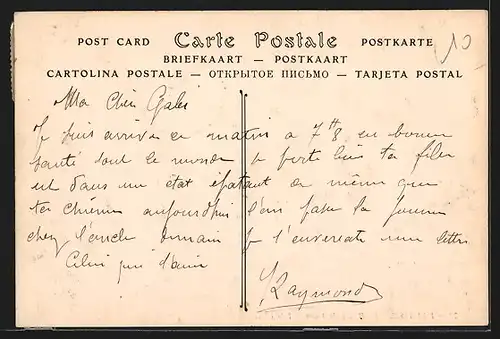 POST CARD Carte Postale POSTKARTE
BRIEFKAART — POSTKAART
CARTOLINA POSTALE — ОТКРЫТОЕ ПИСЬМО — TARJETA POSTAL
10
Ma Chère Gaby
Je suis arrivée ce matin a 7 H en bonne
santé tout le monde se porte bien ta fille
est dans un état épatant de même que
ta chienne aujourd'hui passer la journée
chez l'oncle demain je t'enverrai une lettre
Celui qui t'aime
Raymond